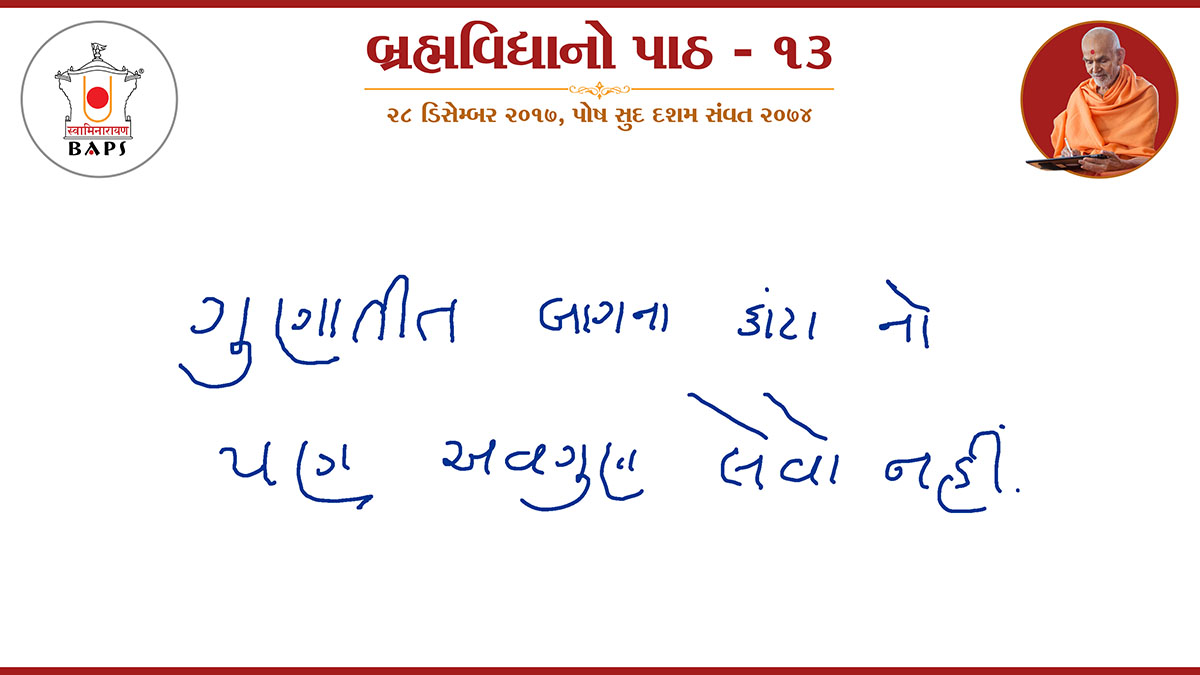 બ્રહ્મવિદ્યાનો પાઠ - ૧૩
૨૮ ડિસેમ્બર ૨૦૧૭, પોષ સુદ દશમ સંવત ૨૦૭૪
स्वामिनारायण
BAPS
ગુણાતીત બાગના કાંટા નો
પણ અવગુણ લેવો નહીં.